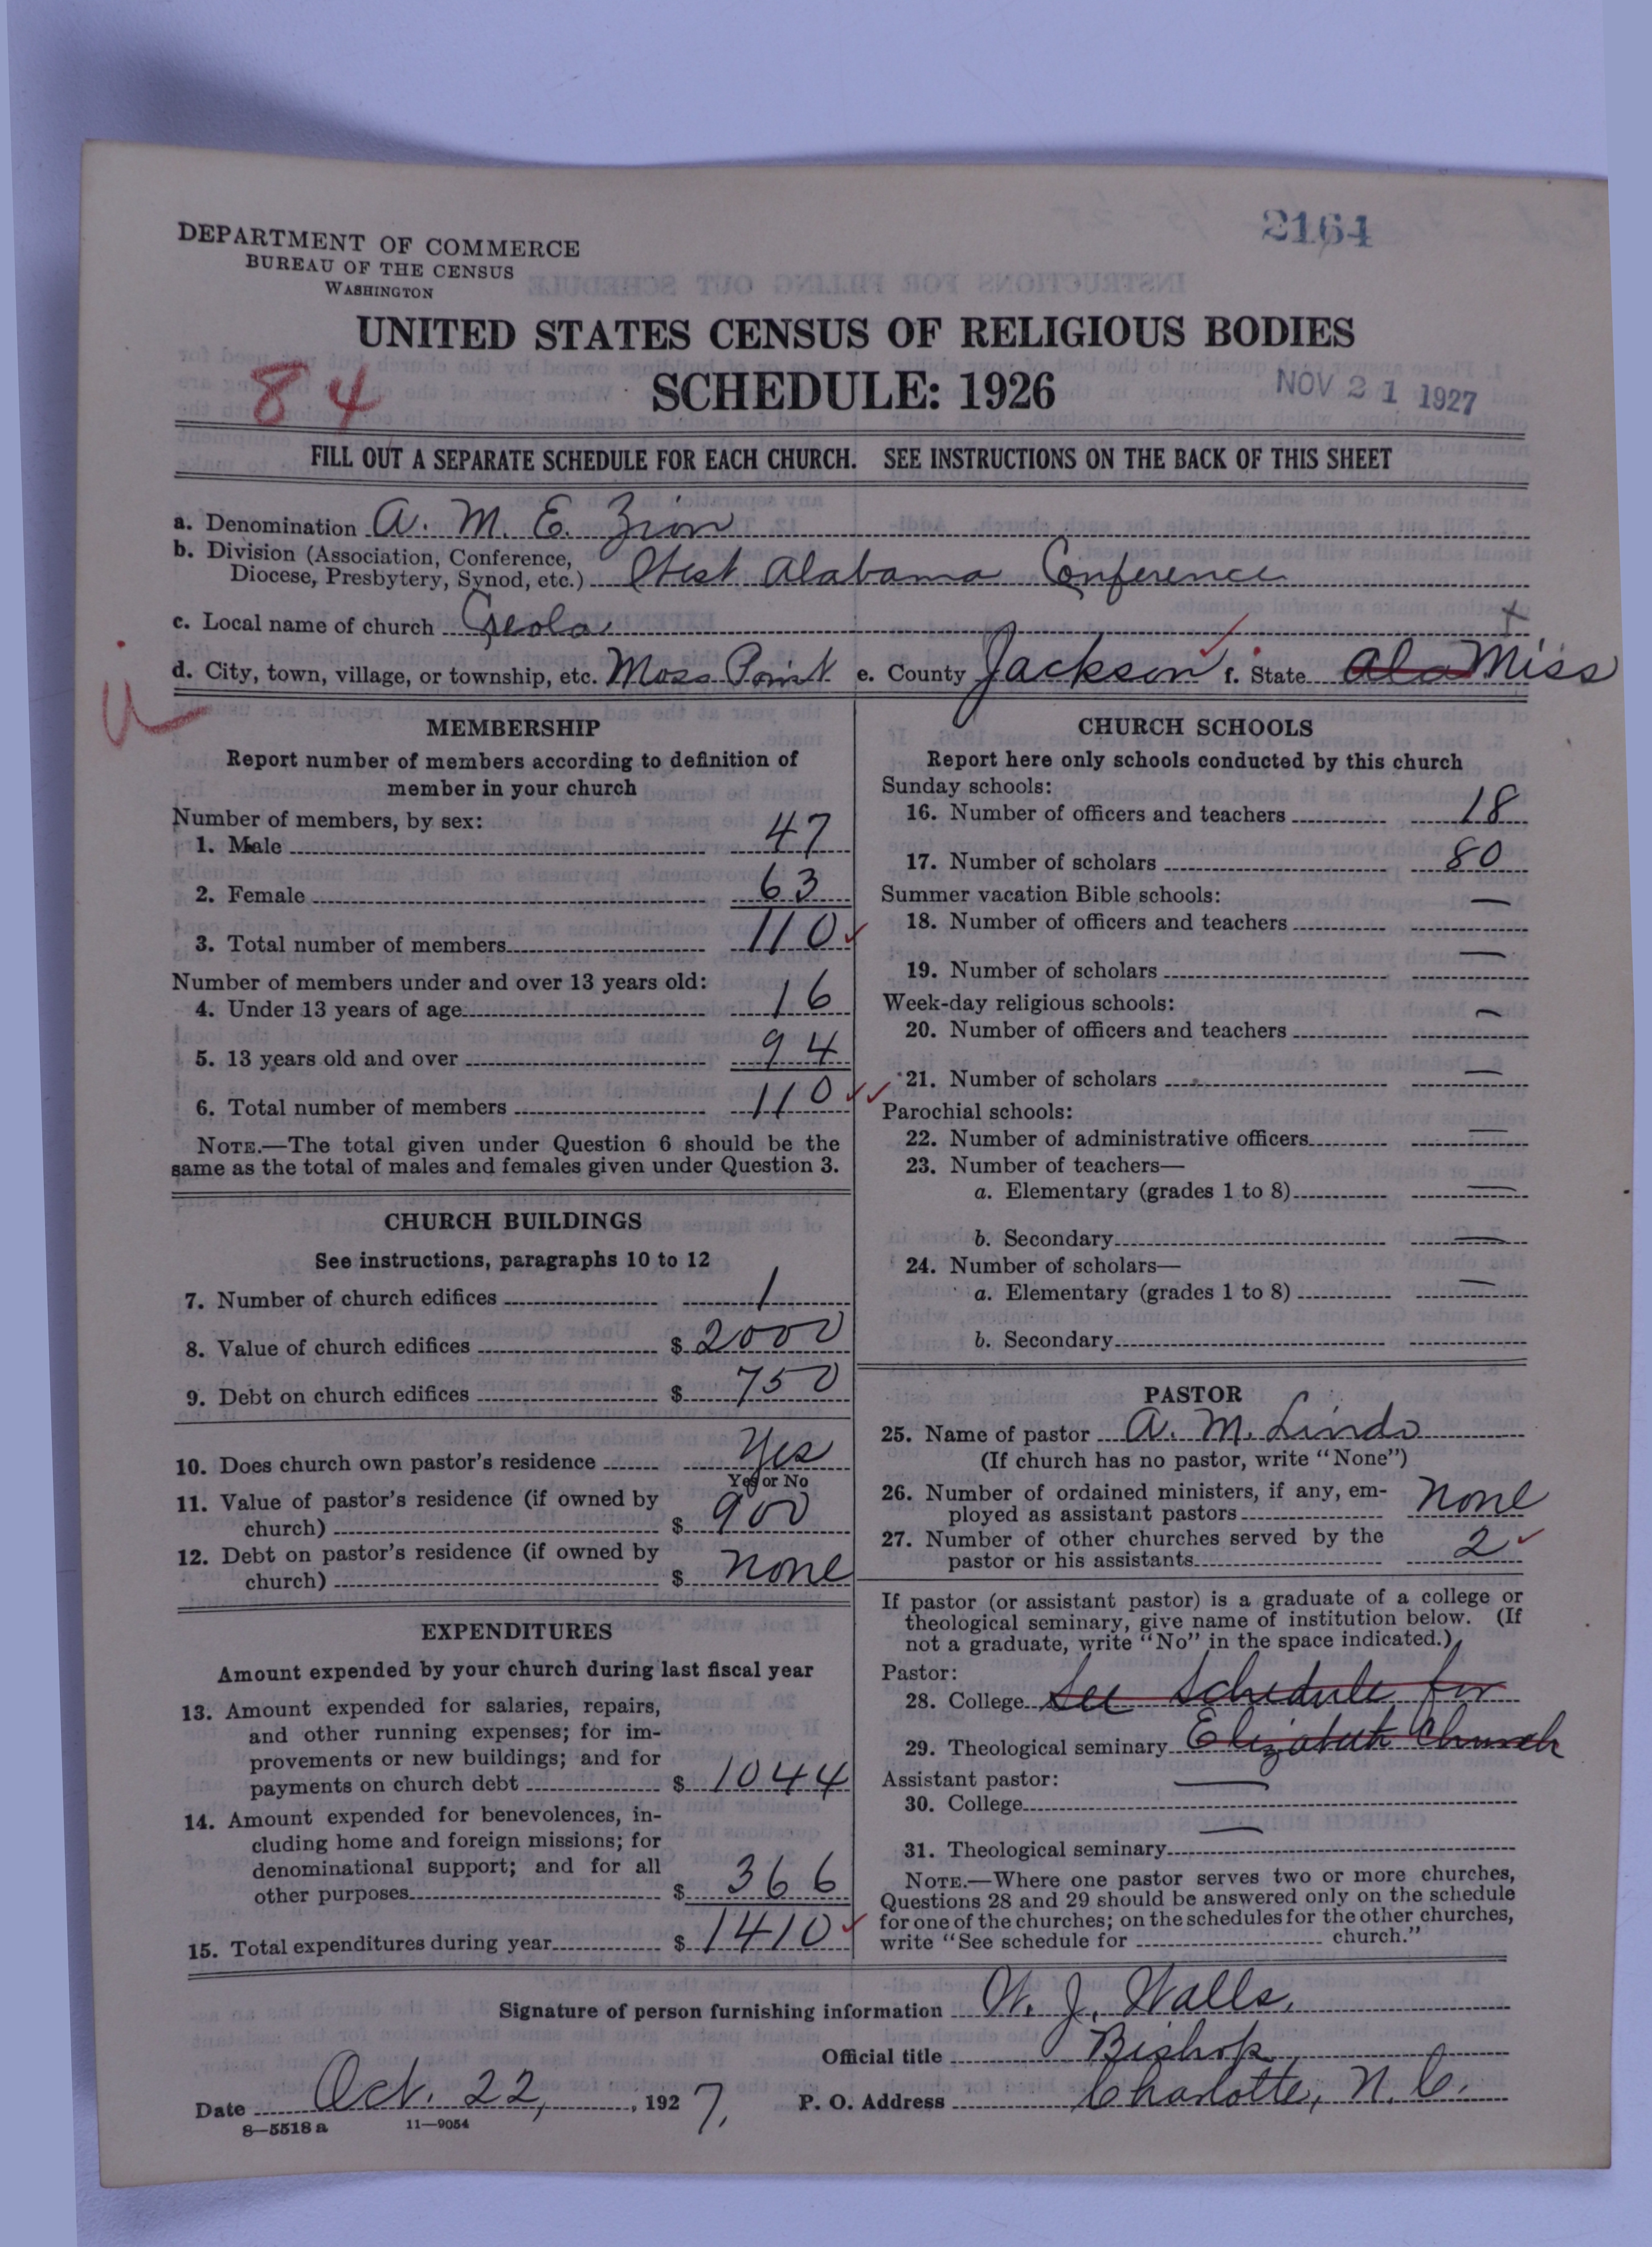 2164
DEPARTMENT OF COMMERCE
BUREAU OF THE CENSUS
WASHINGTON
UNITED STATES CENSUS OF RELIGIOUS BODIES
84
SCHEDULE: 1926
NOV 21 1927
FILL OUT A SEPARATE SCHEDULE FOR EACH CHURCH. SEE INSTRUCTIONS ON THE BACK OF THIS SHEET
a. Denomination A. M. E. Zion
b. Division (Association, Conference,
Diocese, Presbytery, Synod, etc.) West Alabama Conference
c. Local name of church
d. City, town, village, or township, etc. Moss Point e. County Jackson f. State Ala Miss
MEMBERSHIP
Report number of members according to definition of
member in your church
Number of members, by sex:
1. Male 47
2. Female 63
3. Total number of members 110
Number of members under and over 13 years old:
4. Under 13 years of age 16
5. 13 years old and over 94
6. Total number of members 110
NOTE.—The total given under Question 6 should be the
same as the total of males and females given under Question 3.
CHURCH BUILDINGS
See instructions, paragraphs 10 to 12
7. Number of church edifices 1
8. Value of church edifices $ 2000
9. Debt on church edifices $ 750
10. Does church own pastor's residence Yes
Yes or No
11. Value of pastor's residence (if owned by
church) $ 900
12. Debt on pastor's residence (if owned by
church) $ none
EXPENDITURES
Amount expended by your church during last fiscal year
13. Amount expended for salaries, repairs,
and other running expenses; for im-
provements or new buildings; and for
payments on church debt $ 1044
14. Amount expended for benevolences, in-
cluding home and foreign missions; for
denominational support; and for all
other purposes $ 366
15. Total expenditures during year $ 1410
CHURCH SCHOOLS
Report here only schools conducted by this church
Sunday schools:
16. Number of officers and teachers 18
17. Number of scholars 80
Summer vacation Bible schools:
18. Number of officers and teachers —
19. Number of scholars —
Week-day religious schools:
20. Number of officers and teachers —
21. Number of scholars —
Parochial schools:
22. Number of administrative officers —
23. Number of teachers—
a. Elementary (grades 1 to 8) —
b. Secondary —
24. Number of scholars—
a. Elementary (grades 1 to 8) —
b. Secondary
PASTOR
25. Name of pastor A. M. Lindo
(If church has no pastor, write "None")
26. Number of ordained ministers, if any, em-
ployed as assistant pastors none
27. Number of other churches served by the
pastor or his assistants 2
If pastor (or assistant pastor) is a graduate of a college or
theological seminary, give name of institution below. (If
not a graduate, write "No" in the space indicated.)
Pastor:
28. College See Schedule for
29. Theological seminary Elizabeth Church
Assistant pastor: —
30. College
31. Theological seminary —
NOTE.—Where one pastor serves two or more churches,
Questions 28 and 29 should be answered only on the schedule
for one of the churches; on the schedules for the other churches,
write "See schedule for church."
Signature of person furnishing information W. J. Walls,
Official title Bishop
Date Oct. 22, 1927. P. O. Address Charlotte, N. C.
8—5518 a 11—9054